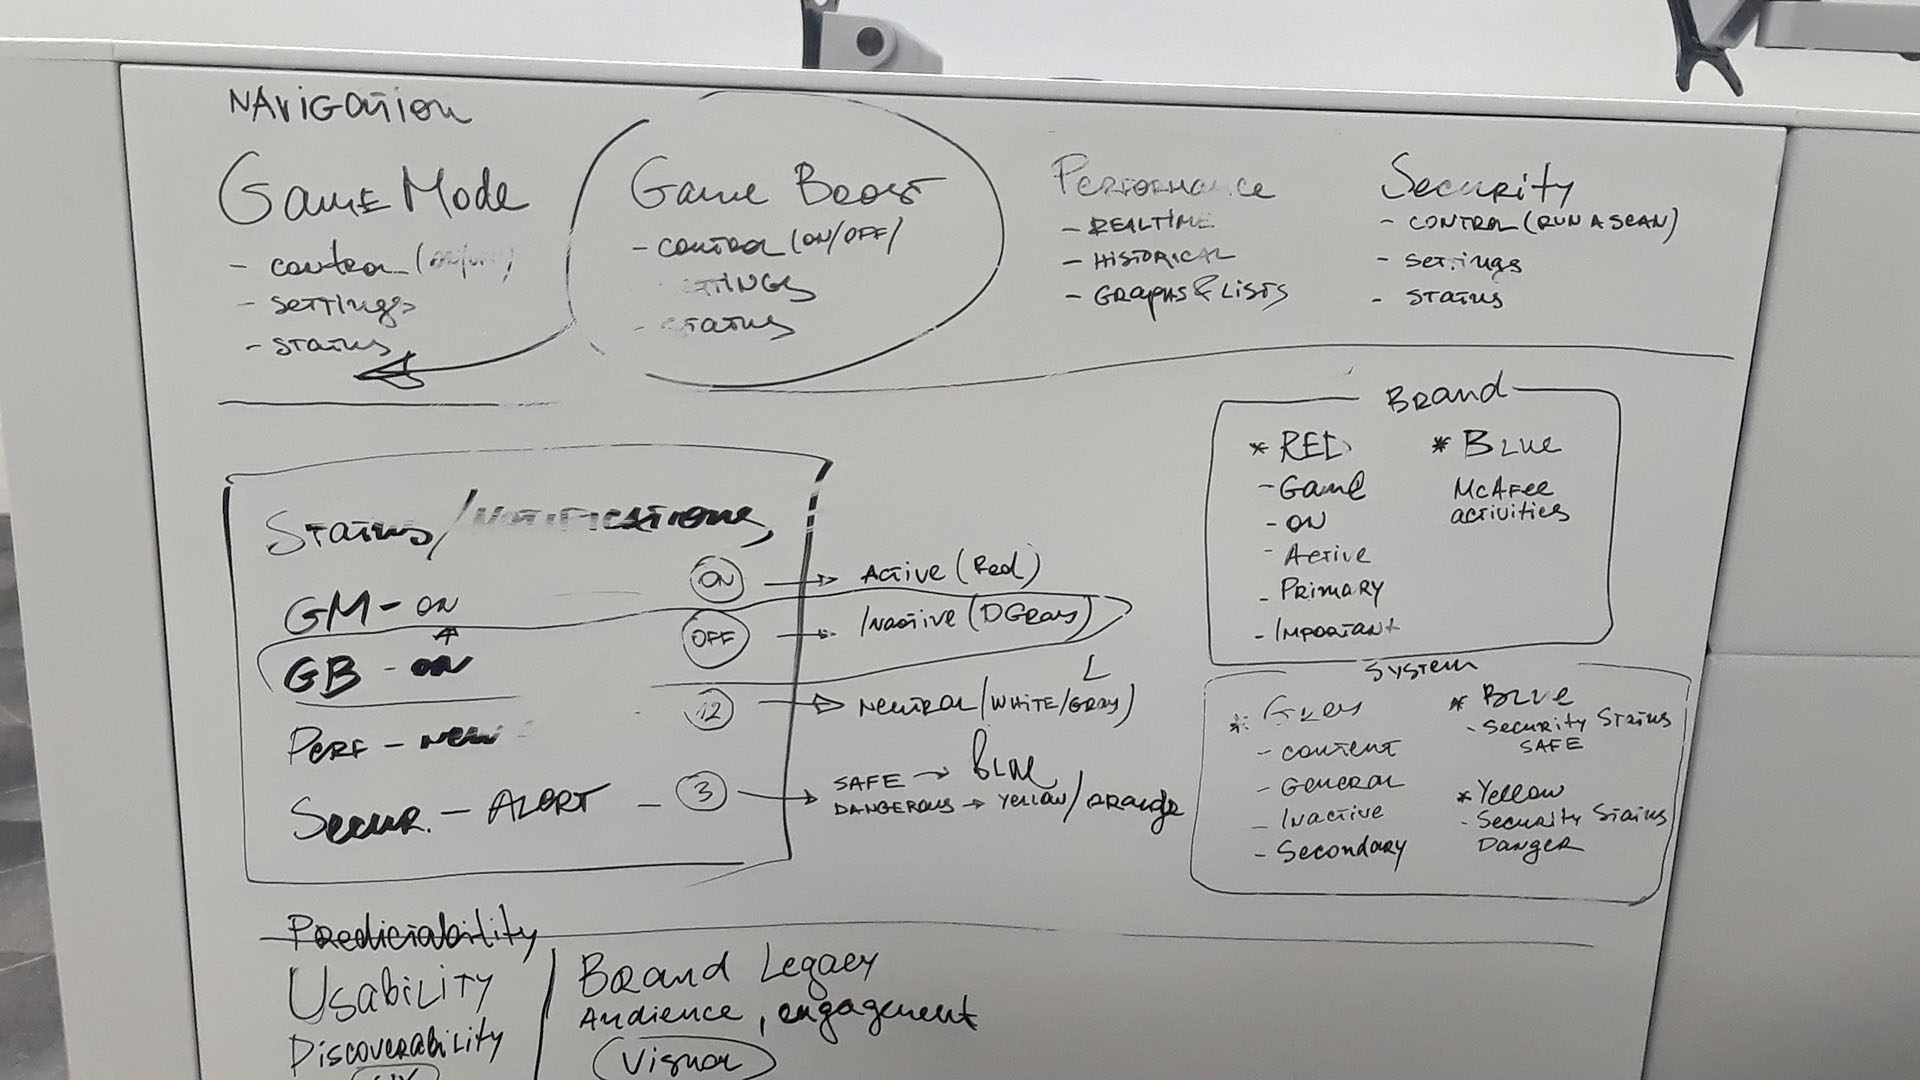 NAViGATion
Game Mode
- control (on/off)
- settings
- status
Game Boost
- control (ON/OFF)
TTINGS
- status
Performance
- REALTIME
- HISTORICAL
- GRAPHS & LISTS
Security
- CONTROL (RUN A SCAN)
- settings
- status
Status/Notifications
GM - ON
GB - ON
Perf - New
Secur. - ALERT - 3
ON → Active (Red)
OFF → Inactive (DGray)
12 → Neutral/(WHITE/LGray)
SAFE → Blue
DANGEROUS → YELLOW/ORANGE
Brand
* RED
- Game
- ON
- Active
- Primary
- IMPORTANT
* BLUE
McAfee
activities
System
* Grey
- content
- General
- Inactive
- Secondary
* BLUE
- Security Status
SAFE
* Yellow
- Security Status
Danger
Predictability
Usability
Discoverability
UX
Brand Legacy
Audience, engagement
Visual